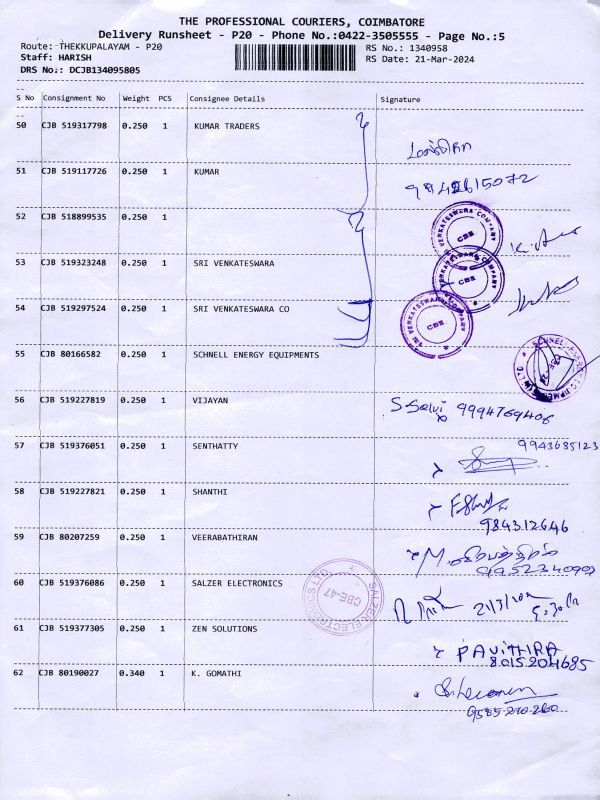 THE PROFESSIONAL COURIERS, COIMBATORE
Delivery Runsheet - P20 - Phone No.:0422-3505555 - Page No.:5
Route: THEKKUPALAYAM - P20
RS No.: 1340958
Staff: HARISH
RS Date: 21-Mar-2024
DRS No.: DCJB134095805
S No Consignment No Weight PCS Consignee Details Signature
50 CJB 519317798 0.250 1 KUMAR TRADERS
51 CJB 519117726 0.250 1 KUMAR
52 CJB 518899535 0.250 1
VENKATESWARA COMPANY
CBE
53 CJB 519323248 0.250 1 SRI VENKATESWARA
VENKATESWARA COMPANY
CBE
54 CJB 519297524 0.250 1 SRI VENKATESWARA CO
SRI VENKATESWARA COMPANY
CBE
55 CJB 80166582 0.250 1 SCHNELL ENERGY EQUIPMENTS
56 CJB 519227819 0.250 1 VIJAYAN S. Selvi 9994769406
57 CJB 519376051 0.250 1 SENTHATTY 9943685123
58 CJB 519227821 0.250 1 SHANTHI
984312646
59 CJB 80207259 0.250 1 VEERABATHIRAN
60 CJB 519376086 0.250 1 SALZER ELECTRONICS
SALZER ELECTRONICS LTD
CBE-47
61 CJB 519377305 0.250 1 ZEN SOLUTIONS PAVITHRA
8015204685
62 CJB 80190027 0.340 1 K. GOMATHI
9585-270-260